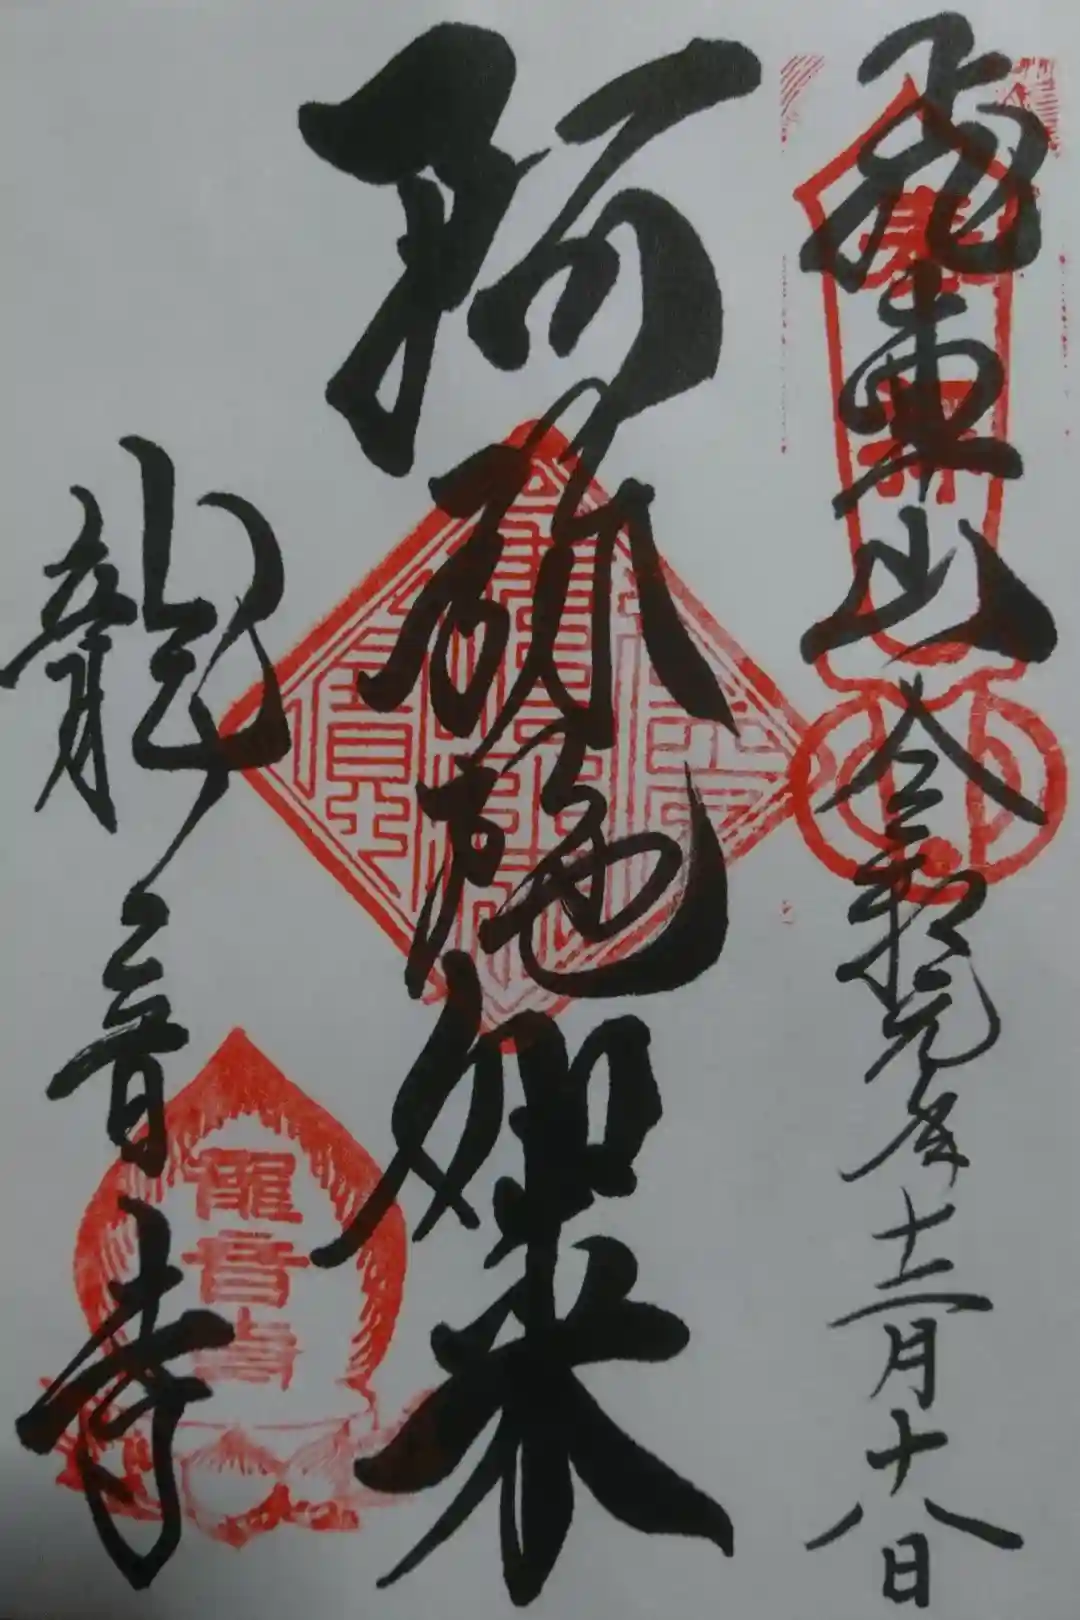 飛車山 令和元年十二月十八日
阿弥陀如来
龍音寺
龍音寺